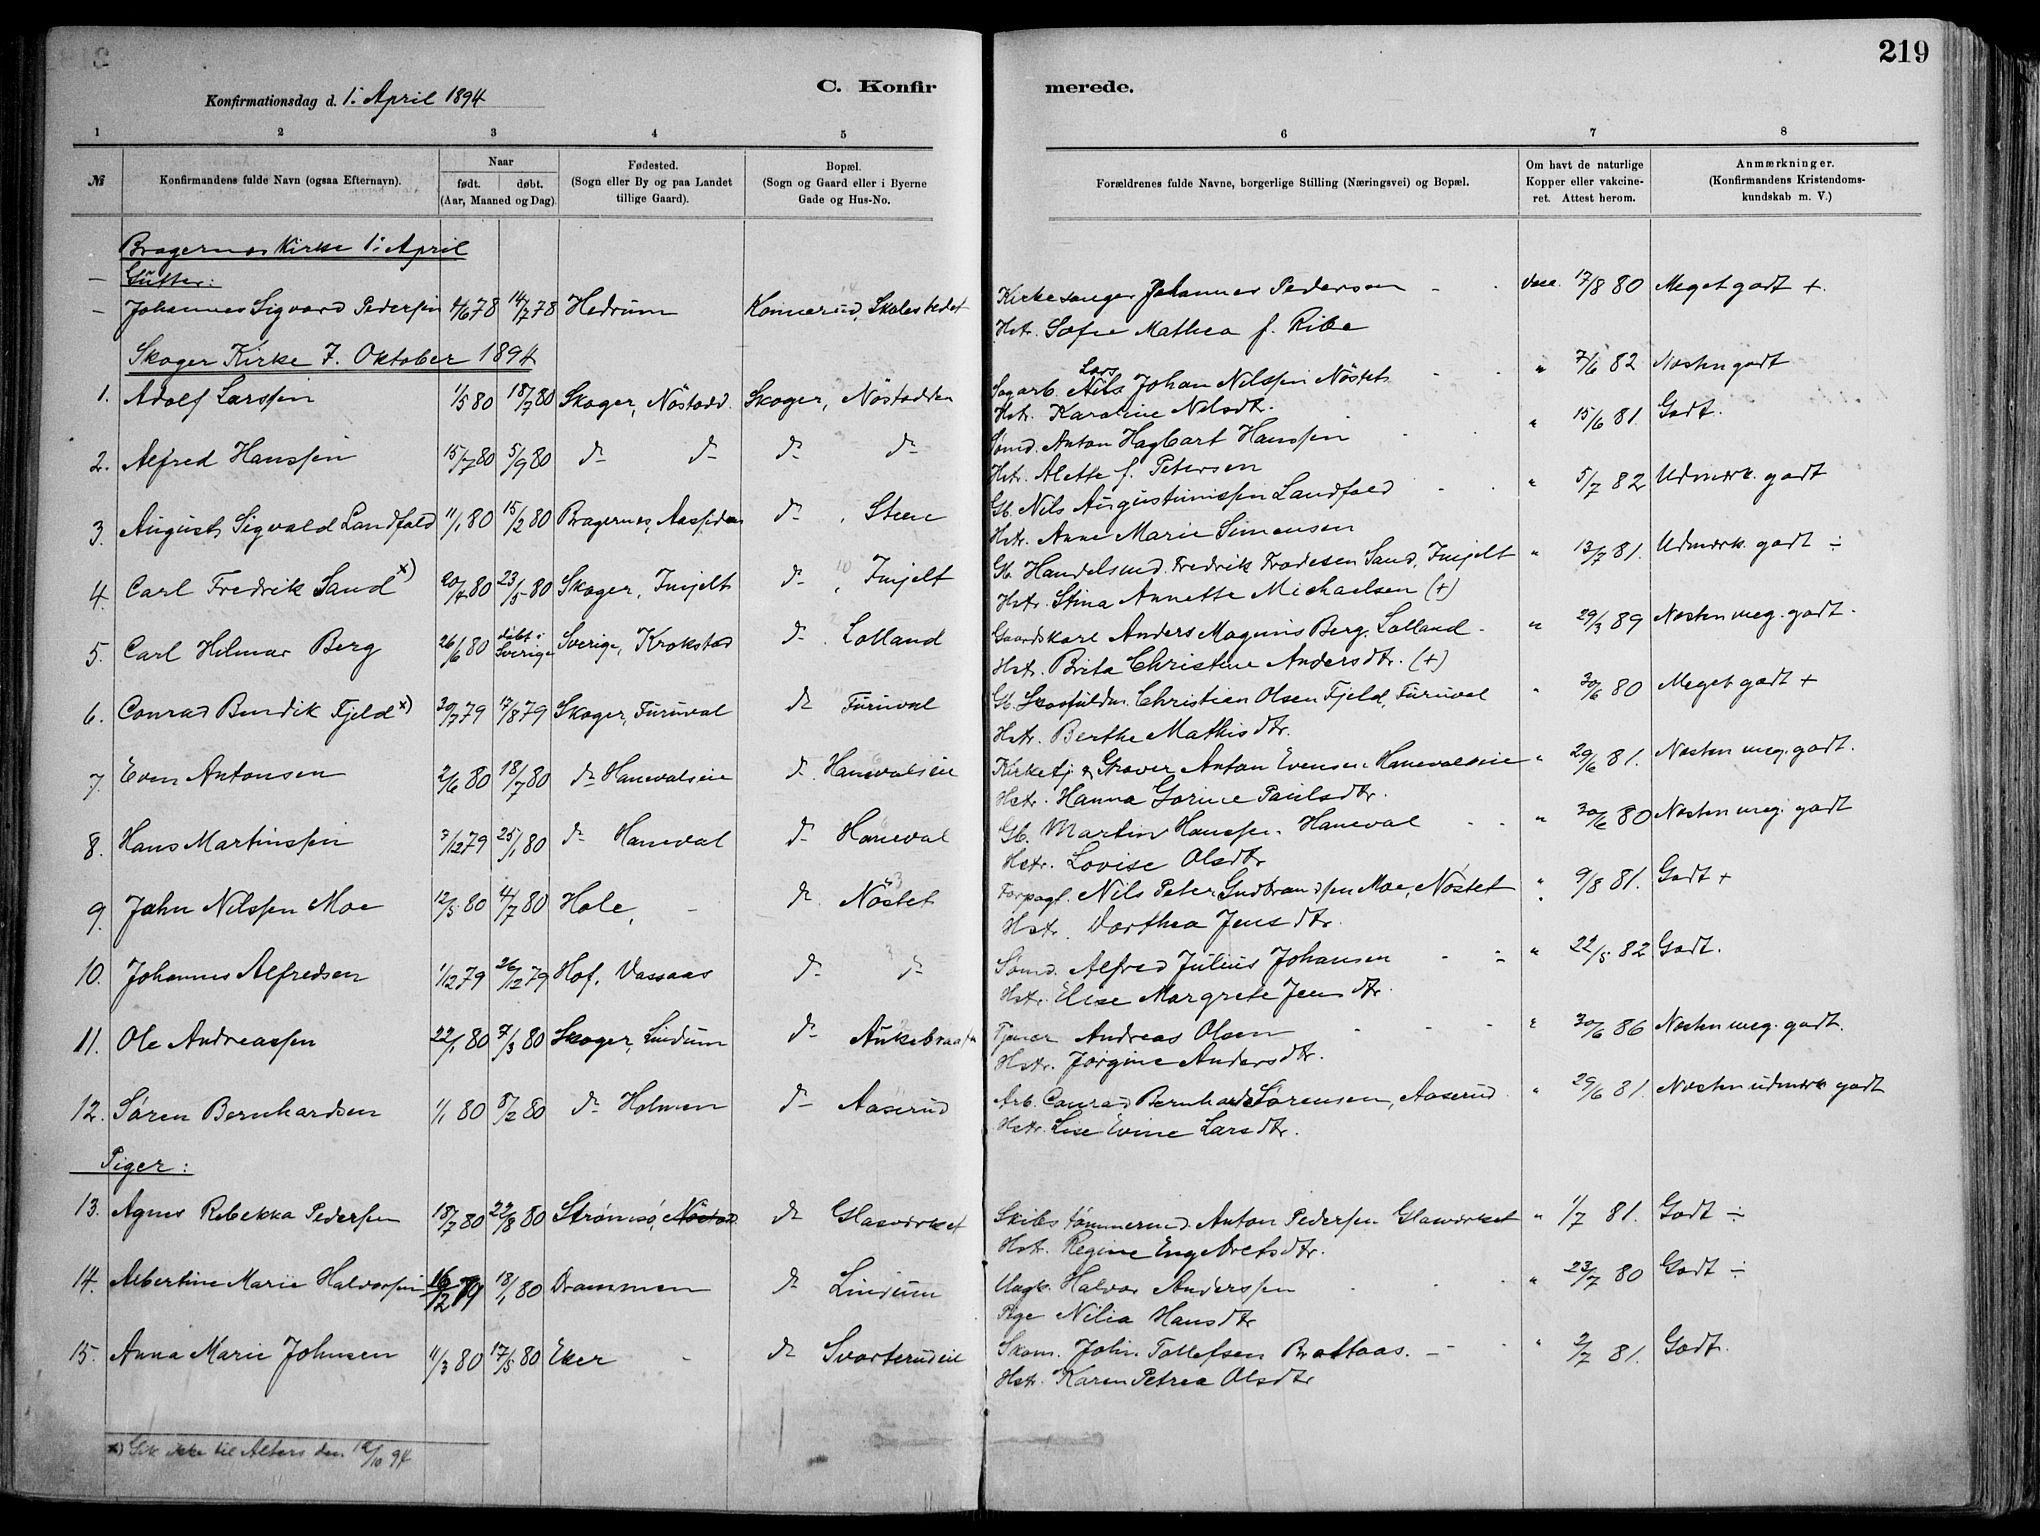 219
Konfirmationsdag d. 1: April 1894
C. Konfirmerede.
1 2 3 4 5 6 7 8
№
Konfirmandens fulde Navn (ogsaa Efternavn).
Naar
født. døbt.
(Aar, Maaned og Dag).
Fødested.
(Sogn eller By og paa Landet
tillige Gaard).
Bopæl.
(Sogn og Gaard eller i Byerne
Gade og Hus-No.
Forældrenes fulde Navne, borgerlige Stilling (Næringsvei) og Bopæl.
Om havt de naturlige
Kopper eller vakcine-
ret. Attest herom.
Anmærkninger.
(Konfirmandens Kristendoms-
kundskab m. V.)
Bragernes Kirke 1: April
Gutter:
Johannes Sigvard Pedersen 4/6 78 14/7 78 Hedrum Konnerud, Skolestedet Kirkesanger Johannes Pedersen vacc. 17/8 80 Meget godt +.
Hstr. Sofie Mathea f. Ribe
Skoger Kirke 7. Oktober 1894
1. Adolf Larssen 1/5 80 18/7 80 Skoger, Nöstadd. Skoger, Nöstodden Sagarb. Lars Nils Johan Nilssen Nöstet " 7/6 82 Nesten godt
Hstr. Karoline Nilsdtr.
2. Alfred Hanssen 15/7 80 5/9 80 do do do do Sömd. Anton Hagbart Hanssen " 15/6 81. Godt.
Hstr. Alette f. Petersen
3. August Sigvald Landfald 11/1 80 15/2 80 Bragernes, Aassiden do , Steen Gb. Nils Augustinussen Landfald " 5/7 82 Udmærk. godt
Hstr. Anne Marie Simensen
4. Carl Fredrik Sand x) 20/4 80 23/5 80 Skoger, Imjelt do , Imjelt Gb. Handelsmd. Fredrik Frodesen Sand, Imjelt " 13/7 81. Udmærk. godt ÷
Hstr. Stina Annette Michaelsen (+)
5. Carl Helmar Berg 26/6 80 døbt i Sverige Sverige, Krokstad do Lolland Gaardskarl Anders Magnus Berg, Lolland " 29/3 89 Nesten meg. godt.
Hstr. Brita Christine Andersdtr. (+)
6. Conrad Bendik Fjeld x) 30/7 79 17/8 79 Skoger, Furuval do Furuval Gb. Skosfuldm. Christian Olsen Fjeld, Furuval " 30/6 80 Meget godt +
Hstr. Berthe Mathisdtr.
7. Even Antonsen 2/6 80 18/7 80 do Hanevalseie do Hanevalseie Kirketj. & Graver Anton Evensen Hanevalseie " 29/6 81. Nesten meg. godt.
Hstr. Hanna Gorine Paulsdtr.
8. Hans Martinssen 3/12 79 25/1 80 do Haneval do Haneval Gb. Martin Hanssen. Haneval " 30/6 80 Nesten meg. godt
Hstr. Lovise Olsdtr
9. John Nilssen Moe 12/5 80 4/7 80 Hole, do Nöstet Forpagt. Nils Peter Gudbrandssen Moe, Nöstet " 9/8 81. Godt +
Hstr. Dorthea Jensdtr.
10. Johannes Alfredsen 1/12 79 26/12 79 Hof, Vassaas do do Sömd. Alfred Julius Johansen " 22/5 82 Godt.
Hstr. Elise Margrete Jensdtr.
11. Ole Andreassen 22/1 80 7/3 80 Skoger, Lindum do Ankebraaten Tjener Andreas Olsen " 30/6 86 Nesten meg. godt.
Hstr. Jørgine Andersdtr.
12. Søren Bernhardsen 1/1 80 8/2 80 do Holmen do Aaserud Arb. Conrad Bernhard Sørensen, Aaserud " 29/6 81. Nesten udmærk godt
Hstr. Lise Evine Larsdtr.
Piger:
13. Agnes Rebekka Pedersen 18/7 80 22/8 80 Strømsø, Nöstod. do Glasværket Skibstømmermd. Anton Pedersen Glasværket " 1/7 81. Godt ÷
Hstr. Regine Engebretsdtr.
14. Albertine Marie Halvorsen 16/12 79 18/1 80 Drammen do Lindum Ungk. Halvor Anderssen " 23/7 80 Godt ÷
Pige Nilia Hansdtr
15. Anna Marie Johnsen 11/3 80 17/5 80 Eker do Svarterudeie Skom. John Tollefsen Brattaas. " 2/7 81. Godt.
Hstr. Karen Petrea Olsdtr
x) Gik ikke til Alters den /10 94